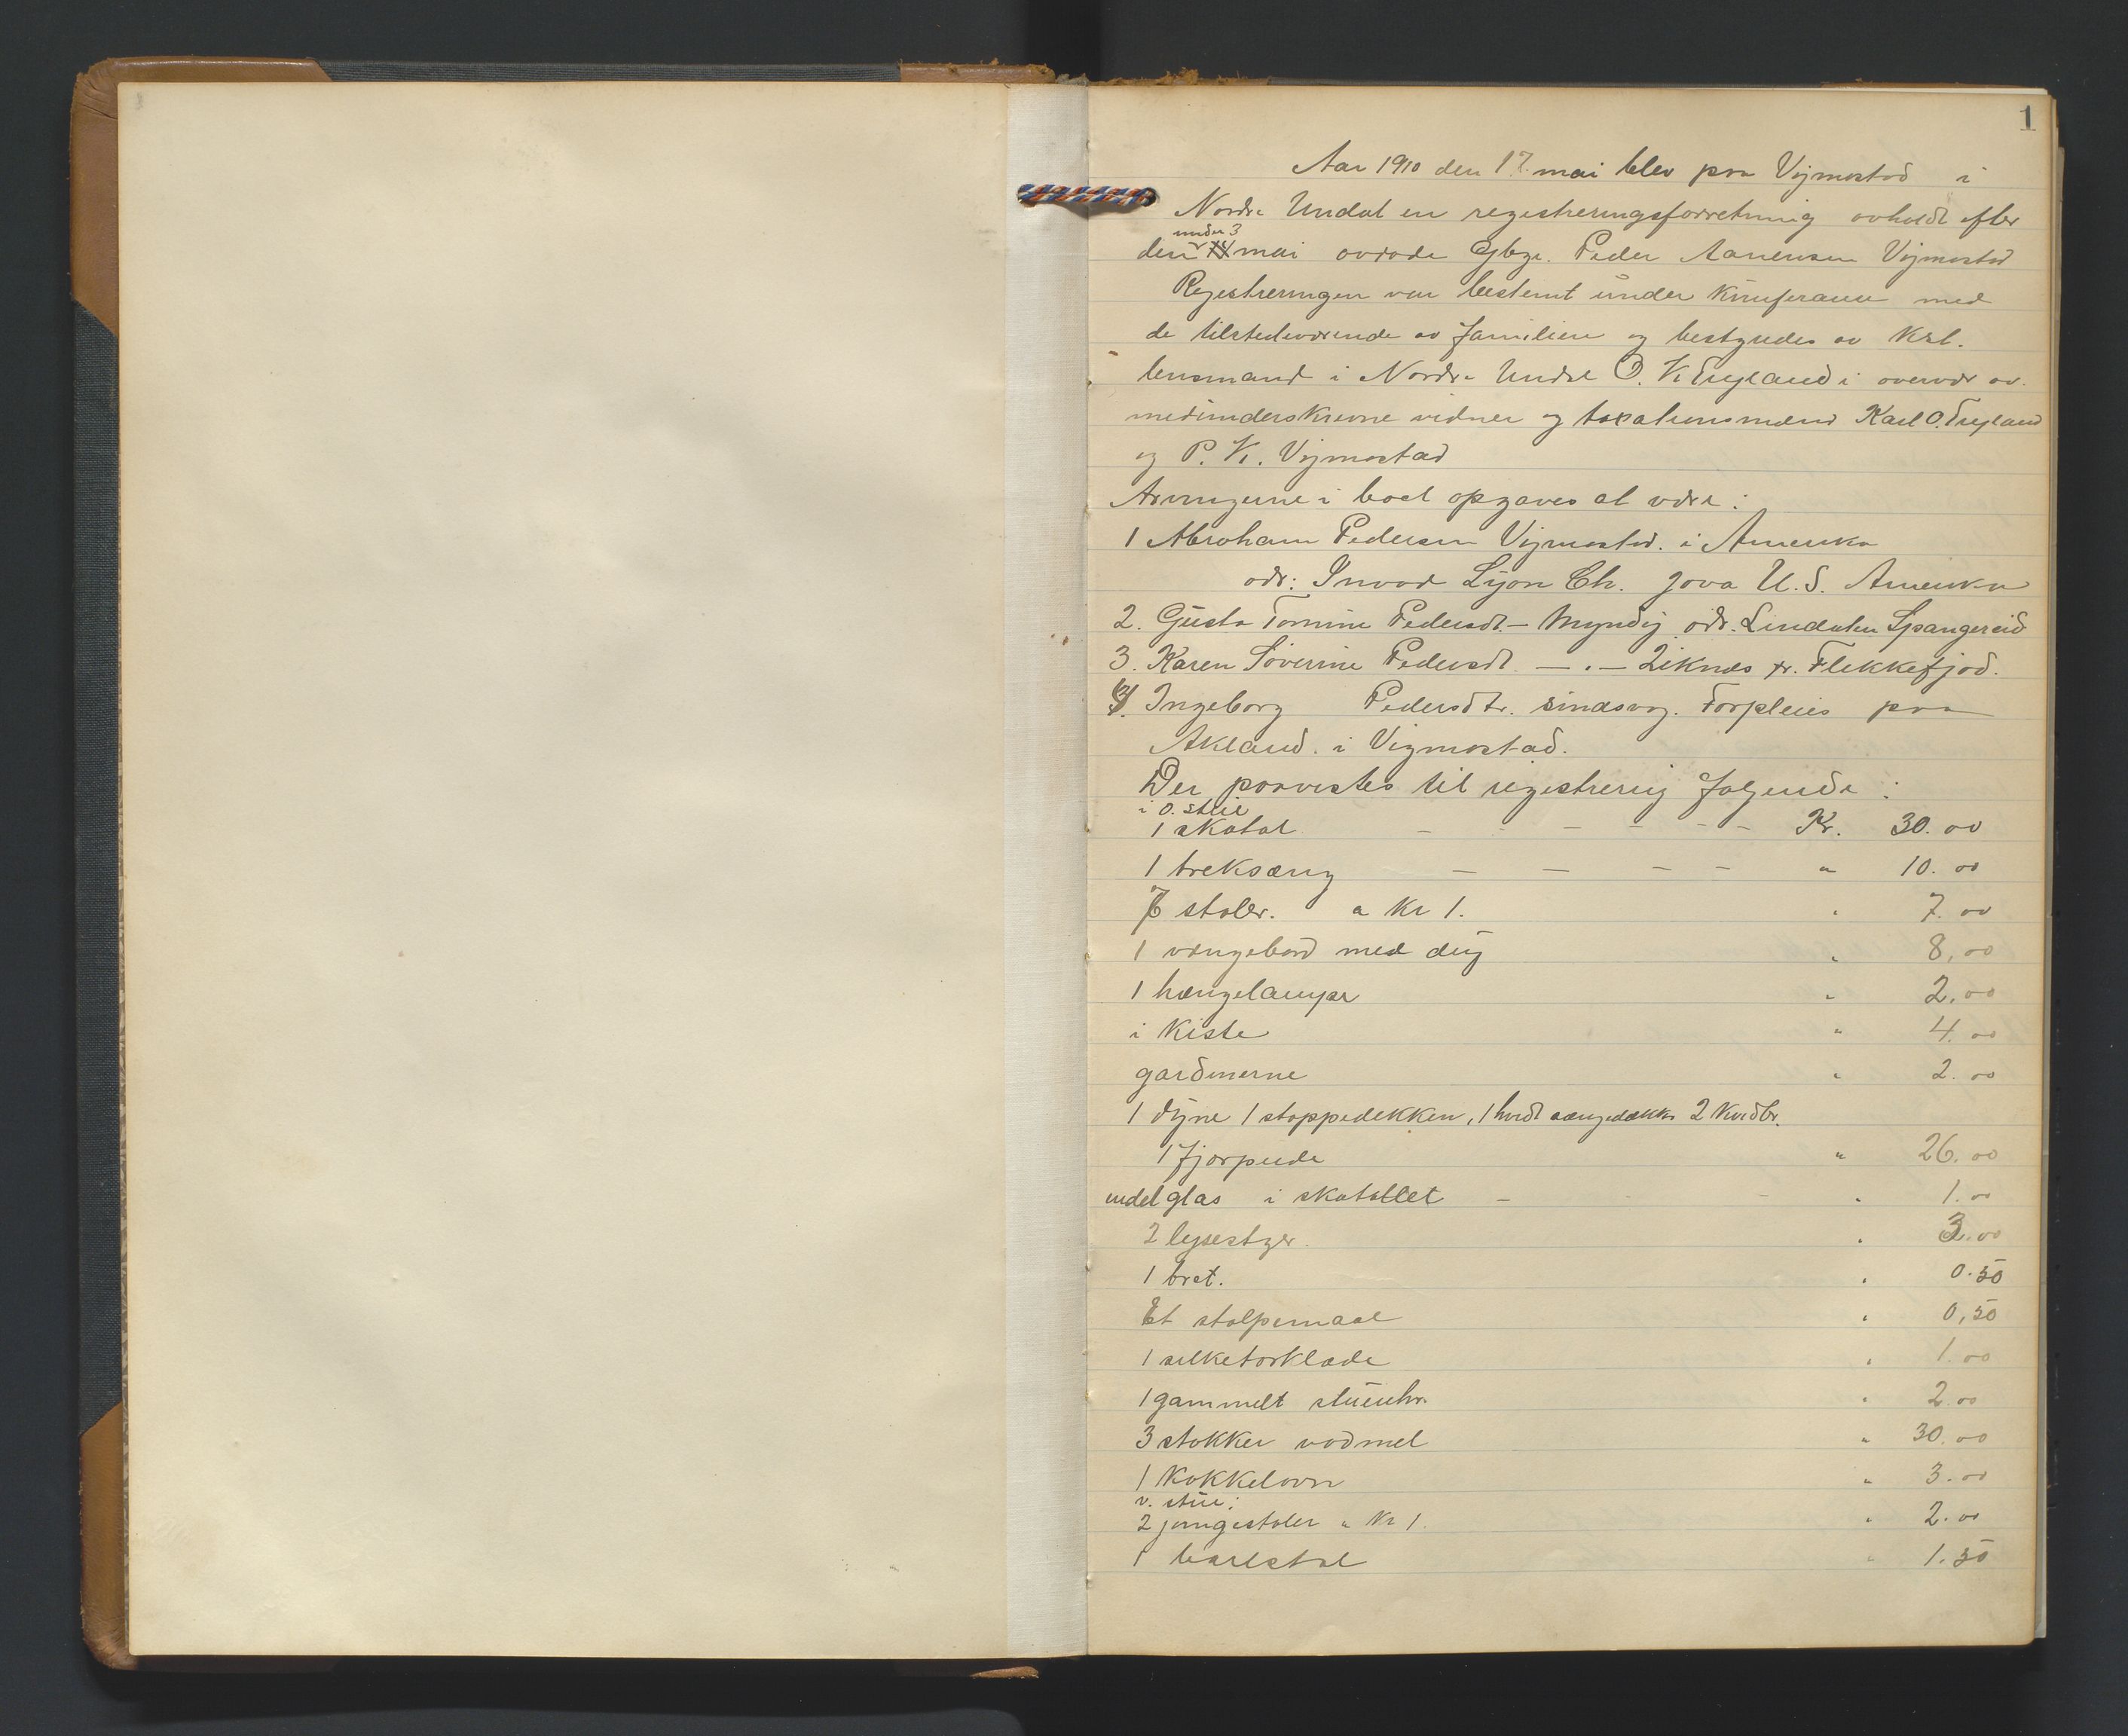 1
Aar 1910 den 17. mai blev paa Vigmostad i
Nordre Undal en registreringsforretning avholdt efter
den under 3 mai avdøde Gbgr. Peder Aanensen Vigmostad
Registreringen var bestemt under Kunferanse med
de tilstedeværende av familien og bestyredes av Kst.
lensmand i Nordre Undal O. K. Trygland i overvær av
medunderskrevne vidner og taxationsmænd Karl O. Trygland
og P. K. Vigmostad
Arvingerne i boet opgaves at være:
1 Abraham Pedersen Vigmostad. i Amerika
adr: Inwood Lyon Ch. Jova U.S. Amerika
2. Gusta Tomine Pedersdt. – Myndig adr. Lindaten Spangereid
3. Karen Severine Pedersdt. — . — Liknes pr. Flekkefjod.
4. Ingeborg Pedersdtr. sindsvag. Forpleies paa
Akland. i Vigmostad.
Der paavistes til registrering følgende:
i ø. stue
1 skatol – – – – – – Kr. 30.00
1 treksæng — — — – " 10.00
7 stoler. a Kr 1. " 7.00
1 vængebord med dug " 8,00
1 hængelampe " 2.00
i Kiste " 4.00
gardinerne " 2.00
1 dyne 1 stoppedekken, 1 hvidt sængedække 2 Hvidbr.
1 fjørpude " 26.00
endel glas i skatollet – – – " 1.00
2 lysestger. " 3.00
1 bret. " 0.50
Et stolpemaal " 0,50
1 silketørklæde " 1.00
1 gammelt stueuhr. " 2.00
3 stokker vadmel " 30.00
1 Kakkelovn " 3.00
v. stue:
2 gyngestoler a Kr 1. " 2.00
1 barlstol " 1.50